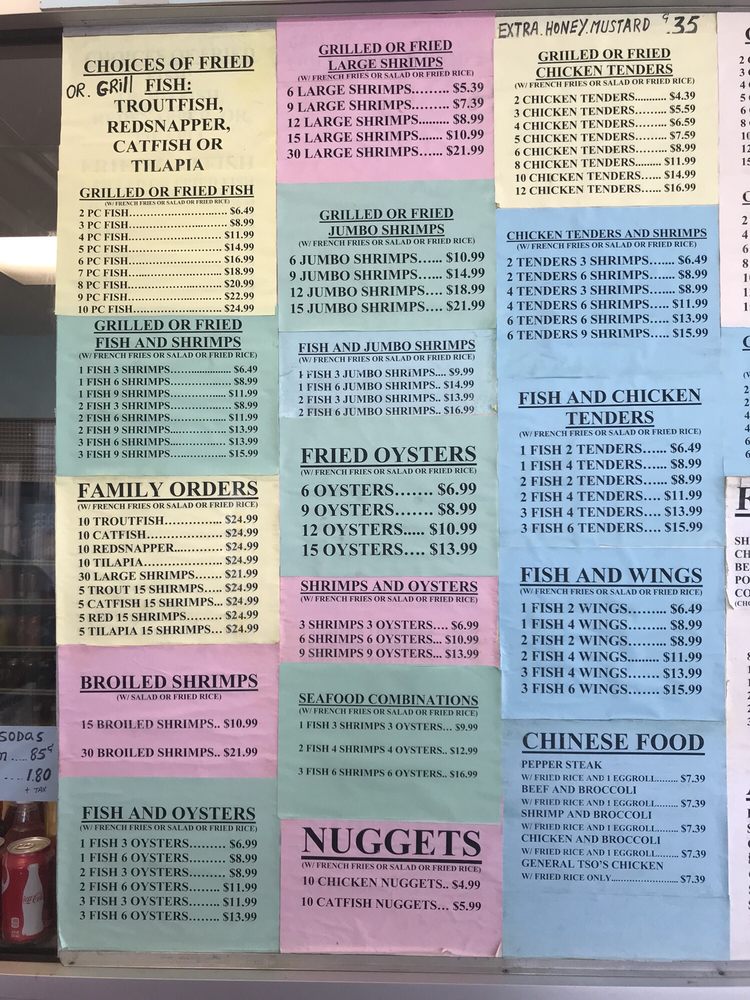 CHOICES OF FRIED
OR. Grill FISH:
TROUTFISH,
REDSNAPPER,
CATFISH OR
TILAPIA
GRILLED OR FRIED FISH
(W/ FRENCH FRIES OR SALAD OR FRIED RICE)
2 PC FISH............................ $6.49
3 PC FISH............................ $8.99
4 PC FISH............................ $11.99
5 PC FISH............................ $14.99
6 PC FISH............................ $16.99
7 PC FISH............................ $18.99
8 PC FISH............................ $20.99
9 PC FISH............................ $22.99
10 PC FISH.......................... $24.99
GRILLED OR FRIED
FISH AND SHRIMPS
(W/ FRENCH FRIES OR SALAD OR FRIED RICE)
1 FISH 3 SHRIMPS.................. $6.49
1 FISH 6 SHRIMPS.................. $8.99
1 FISH 9 SHRIMPS.................. $11.99
2 FISH 3 SHRIMPS.................. $8.99
2 FISH 6 SHRIMPS.................. $11.99
2 FISH 9 SHRIMPS.................. $13.99
3 FISH 6 SHRIMPS.................. $13.99
3 FISH 9 SHRIMPS.................. $15.99
FAMILY ORDERS
(W/ FRENCH FRIES OR SALAD OR FRIED RICE)
10 TROUTFISH................ $24.99
10 CATFISH.................... $24.99
10 REDSNAPPER............. $24.99
10 TILAPIA..................... $24.99
30 LARGE SHRIMPS....... $21.99
5 TROUT 15 SHIRMPS..... $24.99
5 CATFISH 15 SHRIMPS... $24.99
5 RED 15 SHRIMPS......... $24.99
5 TILAPIA 15 SHRIMPS... $24.99
BROILED SHRIMPS
(W/ SALAD OR FRIED RICE)
15 BROILED SHRIMPS.. $10.99
30 BROILED SHRIMPS.. $21.99
FISH AND OYSTERS
(W/ FRENCH FRIES OR SALAD OR FRIED RICE)
1 FISH 3 OYSTERS........ $6.99
1 FISH 6 OYSTERS........ $8.99
2 FISH 3 OYSTERS........ $8.99
2 FISH 6 OYSTERS........ $11.99
3 FISH 3 OYSTERS........ $11.99
3 FISH 6 OYSTERS........ $13.99
SODAS
85¢
1.80
+ TAX
Coca-Cola
GRILLED OR FRIED
LARGE SHRIMPS
(W/ FRENCH FRIES OR SALAD OR FRIED RICE)
6 LARGE SHRIMPS......... $5.39
9 LARGE SHRIMPS......... $7.39
12 LARGE SHRIMPS........ $8.99
15 LARGE SHRIMPS....... $10.99
30 LARGE SHRIMPS...... $21.99
GRILLED OR FRIED
JUMBO SHRIMPS
(W/ FRENCH FRIES OR SALAD OR FRIED RICE)
6 JUMBO SHRIMPS...... $10.99
9 JUMBO SHRIMPS...... $14.99
12 JUMBO SHRIMP.... $18.99
15 JUMBO SHRIMP.... $21.99
FISH AND JUMBO SHRIMPS
(W/ FRENCH FRIES OR SALAD OR FRIED RICE)
1 FISH 3 JUMBO SHRIMPS.... $9.99
1 FISH 6 JUMBO SHRIMPS.. $14.99
2 FISH 3 JUMBO SHRIMPS.. $13.99
2 FISH 6 JUMBO SHRIMPS.. $16.99
FRIED OYSTERS
(W/ FRENCH FRIES OR SALAD OR FRIED RICE)
6 OYSTERS....... $6.99
9 OYSTERS....... $8.99
12 OYSTERS..... $10.99
15 OYSTERS.... $13.99
SHRIMPS AND OYSTERS
(W/ FRENCH FRIES OR SALAD OR FRIED RICE)
3 SHRIMPS 3 OYSTERS.... $6.99
6 SHRIMPS 6 OYSTERS... $10.99
9 SHRIMPS 9 OYSTERS... $13.99
SEAFOOD COMBINATIONS
(W/ FRENCH FRIES OR SALAD OR FRIED RICE)
1 FISH 3 SHRIMPS 3 OYSTERS... $9.99
2 FISH 4 SHRIMPS 4 OYSTERS.. $12.99
3 FISH 6 SHRIMPS 6 OYSTERS.. $16.99
NUGGETS
(W/ FRENCH FRIES OR SALAD OR FRIED RICE)
10 CHICKEN NUGGETS.. $4.99
10 CATFISH NUGGETS... $5.99
EXTRA. HONEY. MUSTARD ¢.35
GRIILED OR FRIED
CHICKEN TENDERS
(W/ FRENCH FRIES OR SALAD OR FRIED RICE)
2 CHICKEN TENDERS.......... $4.39
3 CHICKEN TENDERS.......... $5.59
4 CHICKEN TENDERS.......... $6.59
5 CHICKEN TENDERS.......... $7.59
6 CHICKEN TENDERS.......... $8.99
8 CHICKEN TENDERS.......... $11.99
10 CHICKEN TENDERS...... $14.99
12 CHICKEN TENDERS...... $16.99
CHICKEN TENDERS AND SHRIMPS
(W/ FRENCH FRIES OR SALAD OR FRIED RICE)
2 TENDERS 3 SHRIMPS....... $6.49
2 TENDERS 6 SHRIMPS....... $8.99
4 TENDERS 3 SHRIMPS....... $8.99
4 TENDERS 6 SHRIMPS..... $11.99
6 TENDERS 6 SHRIMPS..... $13.99
6 TENDERS 9 SHRIMPS..... $15.99
FISH AND CHICKEN
TENDERS
(W/ FRENCH FRIES OR SALAD OR FRIED RICE)
1 FISH 2 TENDERS...... $6.49
1 FISH 4 TENDERS...... $8.99
2 FISH 2 TENDERS...... $8.99
2 FISH 4 TENDERS.... $11.99
3 FISH 4 TENDERS.... $13.99
3 FISH 6 TENDERS.... $15.99
FISH AND WINGS
(W/FRENCH FRIES OR SALAD OR FRIED RICE)
1 FISH 2 WINGS......... $6.49
1 FISH 4 WINGS......... $8.99
2 FISH 2 WINGS......... $8.99
2 FISH 4 WINGS......... $11.99
3 FISH 4 WINGS....... $13.99
3 FISH 6 WINGS....... $15.99
CHINESE FOOD
PEPPER STEAK
W/ FRIED RICE AND 1 EGGROLL........ $7.39
BEEF AND BROCCOLI
W/ FRIED RICE AND 1 EGGROLL........ $7.39
SHRIMP AND BROCCOLI
W/ FRIED RICE AND 1 EGGROLL....... $7.39
CHICKEN AND BROCCOLI
W/ FRIED RICE AND 1 EGGROLL...... $7.39
GENERAL TSO'S CHICKEN
W/ FRIED RICE ONLY...................... $7.39